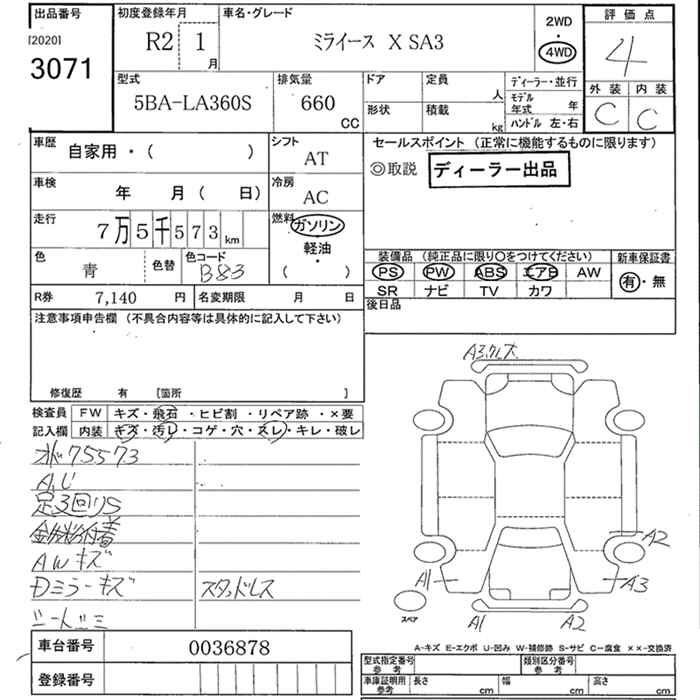 出品番号
[2020]
3071
初度登録年月
R2 1月
車名・グレード
ミライース X SA3
2WD
・
4WD
評価点
4
外装 内装
C C
型式
5BA-LA360S
排気量
660
CC
ドア
定員
人
形状
積載
kg
ディーラー・並行
モデル年式 年
ハンドル 左・右
車歴
自家用・( )
シフト
AT
車検
年 月 ( 日)
冷房
AC
走行
7万5千573 km
燃料
ガソリン
軽油
・
( )
色
青
色替
色コード
B83
R券
7,140 円
名変期限
月 日
セールスポイント (正常に機能するものに限ります)
◎取説 ディーラー出品
装備品 (純正品に限り〇をつけてください)
新車保証書
PS PW ABS エアB AW
有・無
SR ナビ TV カワ
後日品
注意事項申告欄 (不具合内容等は具体的に記入して下さい)
修復歴 有 [箇所 ]
検査員記入欄
FW キズ・飛石・ヒビ割・リペア跡・×要
内装 キズ・汚レ・コゲ・穴・スレ・キレ・破レ
75573
A,U
足3回りS
AWキズ
Dミラーキズ
スタッドレス
A3
A2
A1
A3
スペア
A1
A2
A-キズ E-エクボ U-凹み W-補修跡 S-サビ C-腐食 ××-交換済
車台番号
0036878
登録番号
型式指定番号
参考
類別区分番号
参考
車庫証明用
参考
長さ cm
幅 cm
高さ cm